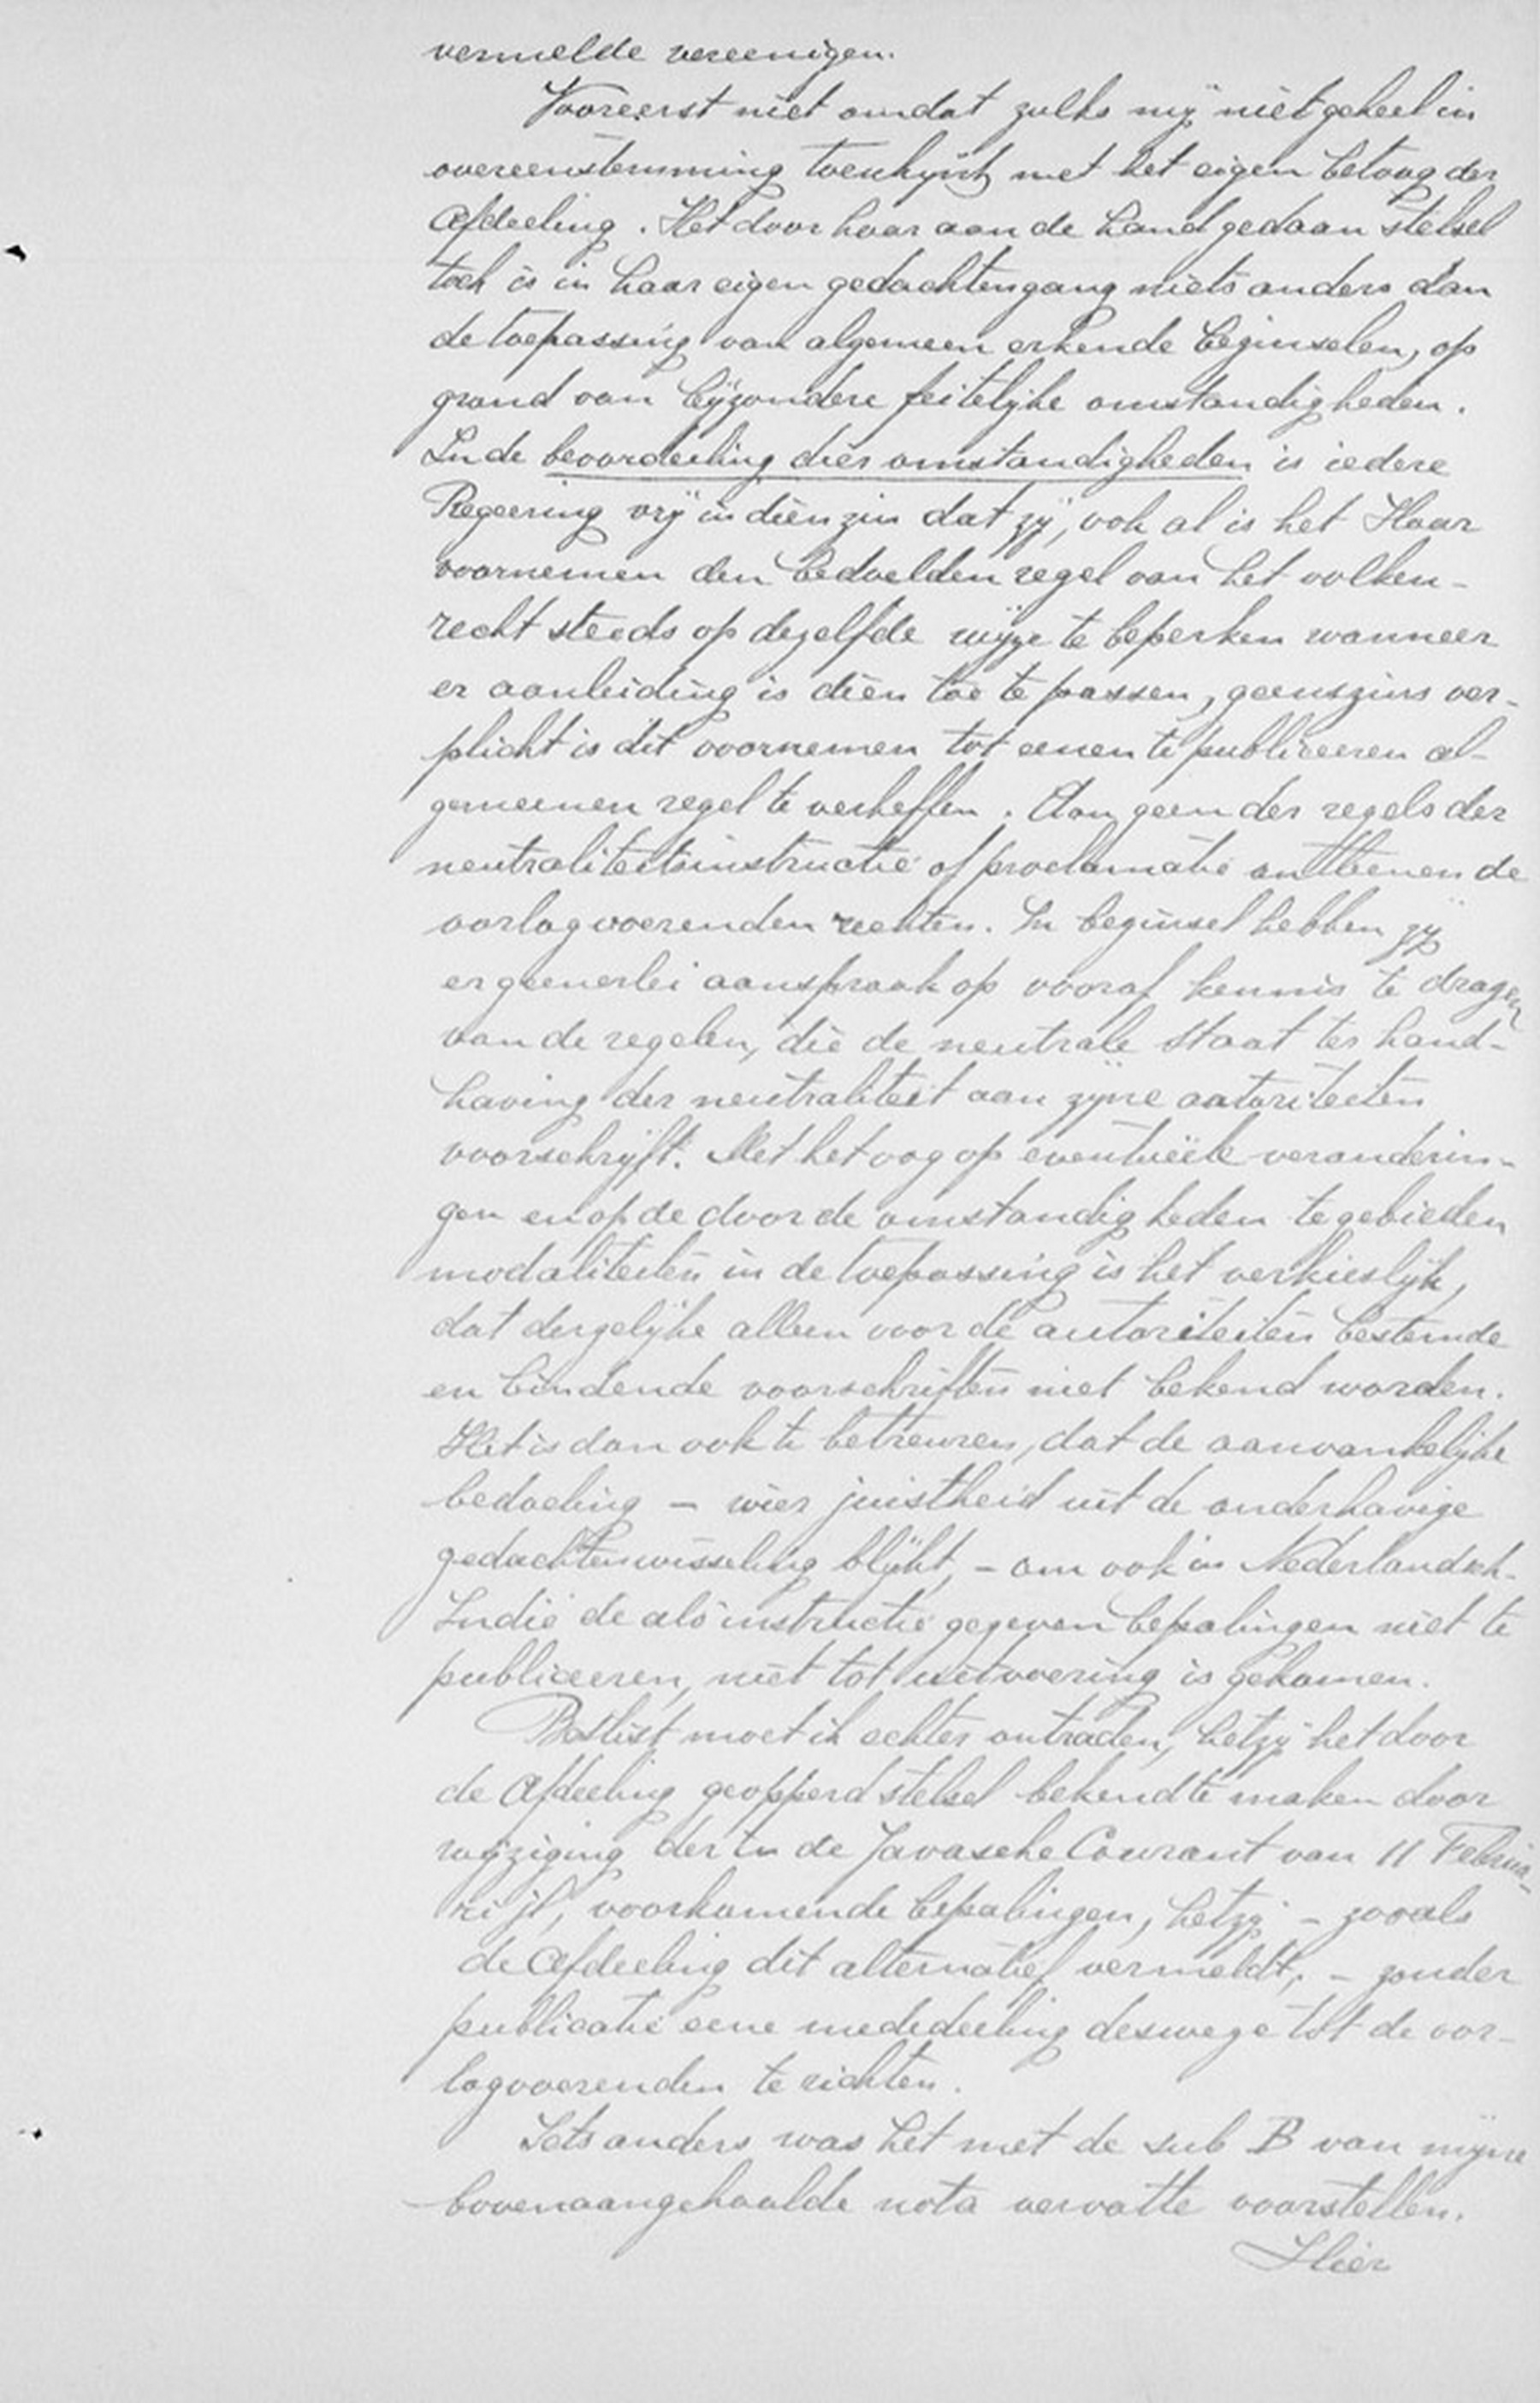 vermelde vereenigen.
Vooreerst niet omdat zulks mij niet geheel in
overeenstemming toeschijnt met het eigen betoog der
Afdeeling. Het door haar aan de hand gedaan stelsel
toch is in haar eigen gedachtengang niets anders dan
de toepassing van algemeen erkende beginselen, op
grond van bijzondere feitelijke omstandigheden.
In de beoordeeling dier omstandigheden is iedere
Regeering vrij in dien zin dat zij, ook al is het Haar
voornemen den bedoelden regel van het volken-
recht steeds op dezelfde wijze te beperken wanneer
er aanleiding is dien toe te passen, geenszins ver-
plicht is dit voornemen tot eenen te publiceeren al-
gemeenen regel te verheffen. Aan geen der regels der
neutraliteitsinstructie of proclamatie ontleenen de
oorlogvoerenden rechten. In beginsel hebben zij
er geenerlei aanspraak op vooraf kennis te dragen
van de regelen, die de neutrale staat ter hand-
having der neutraliteit aan zijne autoriteiten
voorschrijft. Met het oog op eventuëele veranderin-
gen en op de door de omstandigheden te gebieden
modaliteiten in de toepassing is het verkieslijk,
dat dergelijke alleen voor de autoriteiten bestemde
en bindende voorschriften niet bekend worden.
Het is dan ook te betreuren, dat de aanvankelijke
bedoeling - wier juistheid uit de onderhavige
gedachtenwisseling blijkt, - om ook in Nederlandsch-
Indië de als instructie gegeven bepalingen niet te
publiceeren, niet tot uitvoering is gekomen.
Beslist moet ik echter ontraden, hetzij het door
de Afdeeling geopperd stelsel bekend te maken door
wijziging der in de Javasche Courant van 11 Februa-
ri jl, voorkomende bepalingen, hetzij - zooals
de Afdeeling dit alternatief vermeldt, - zonder
publicatie eene mededeeling deswege tot de oor-
logvoerenden te richten.
Iets anders was het met de sub B van mijne
bovenaangehaalde nota vervatte voorstellen.
Hier